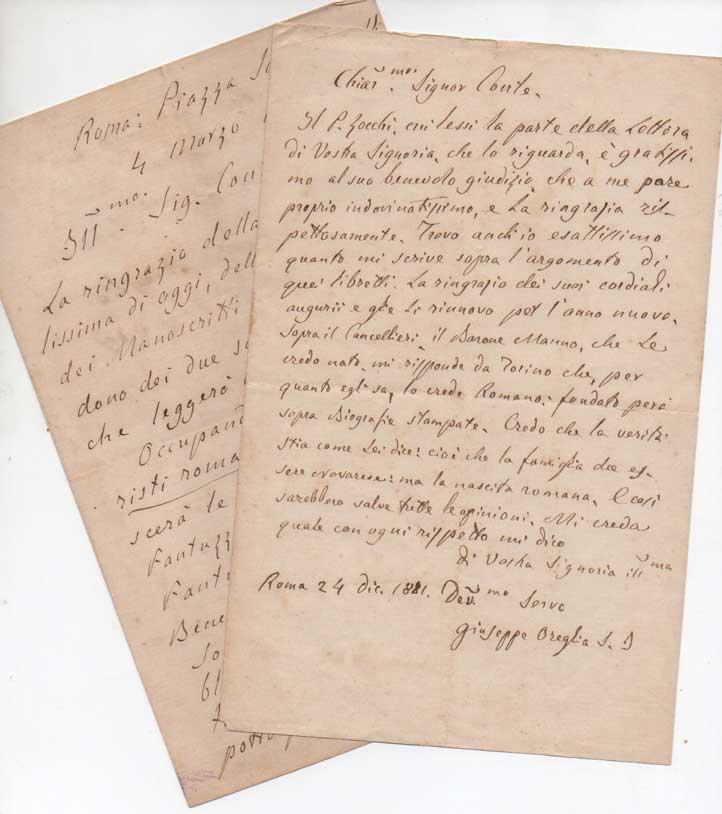 Roma: Piazza
4 Marzo
Ill.mo Sig. Con
La ringrazio della
lissima di oggi, dell
dei Manoscritti
dono dei due
che leggerò
Occupand
risti roma
scerà le
Fantuzz
Fant
Bene
So
61
potrò
Chiar.mo Signor Conte.
Il P. Zocchi, cui lessi la parte della Lettera
di Vostra Signoria, che lo riguarda, è gratissi-
mo al suo benevolo giudizio, che a me pare
proprio indovinatissimo, e La ringrazia ris-
pettosamente. Trovo anch'io esattissimo
quanto mi scrive sopra l'argomento di
quei libretti. La ringrazio dei suoi cordiali
augurii e gli rinnovo per l'anno nuovo.
Sopra il Cancellieri, il Barone Manno, che Le
credo noto, mi risponde da Torino che, per
quanto egli sa, lo crede Romano: fondato però
sopra Biografie stampate. Credo che la verità
stia come Lei dice: cioè che la famiglia dee es-
sere Novarese: ma la nascita romana. E così
sarebbero salve tutte le opinioni. Mi creda
quale con ogni rispetto mi dico
di Vostra Signoria ill.ma
Roma 24 dic. 1881. Dev.mo Servo
Giuseppe Oreglia S. J